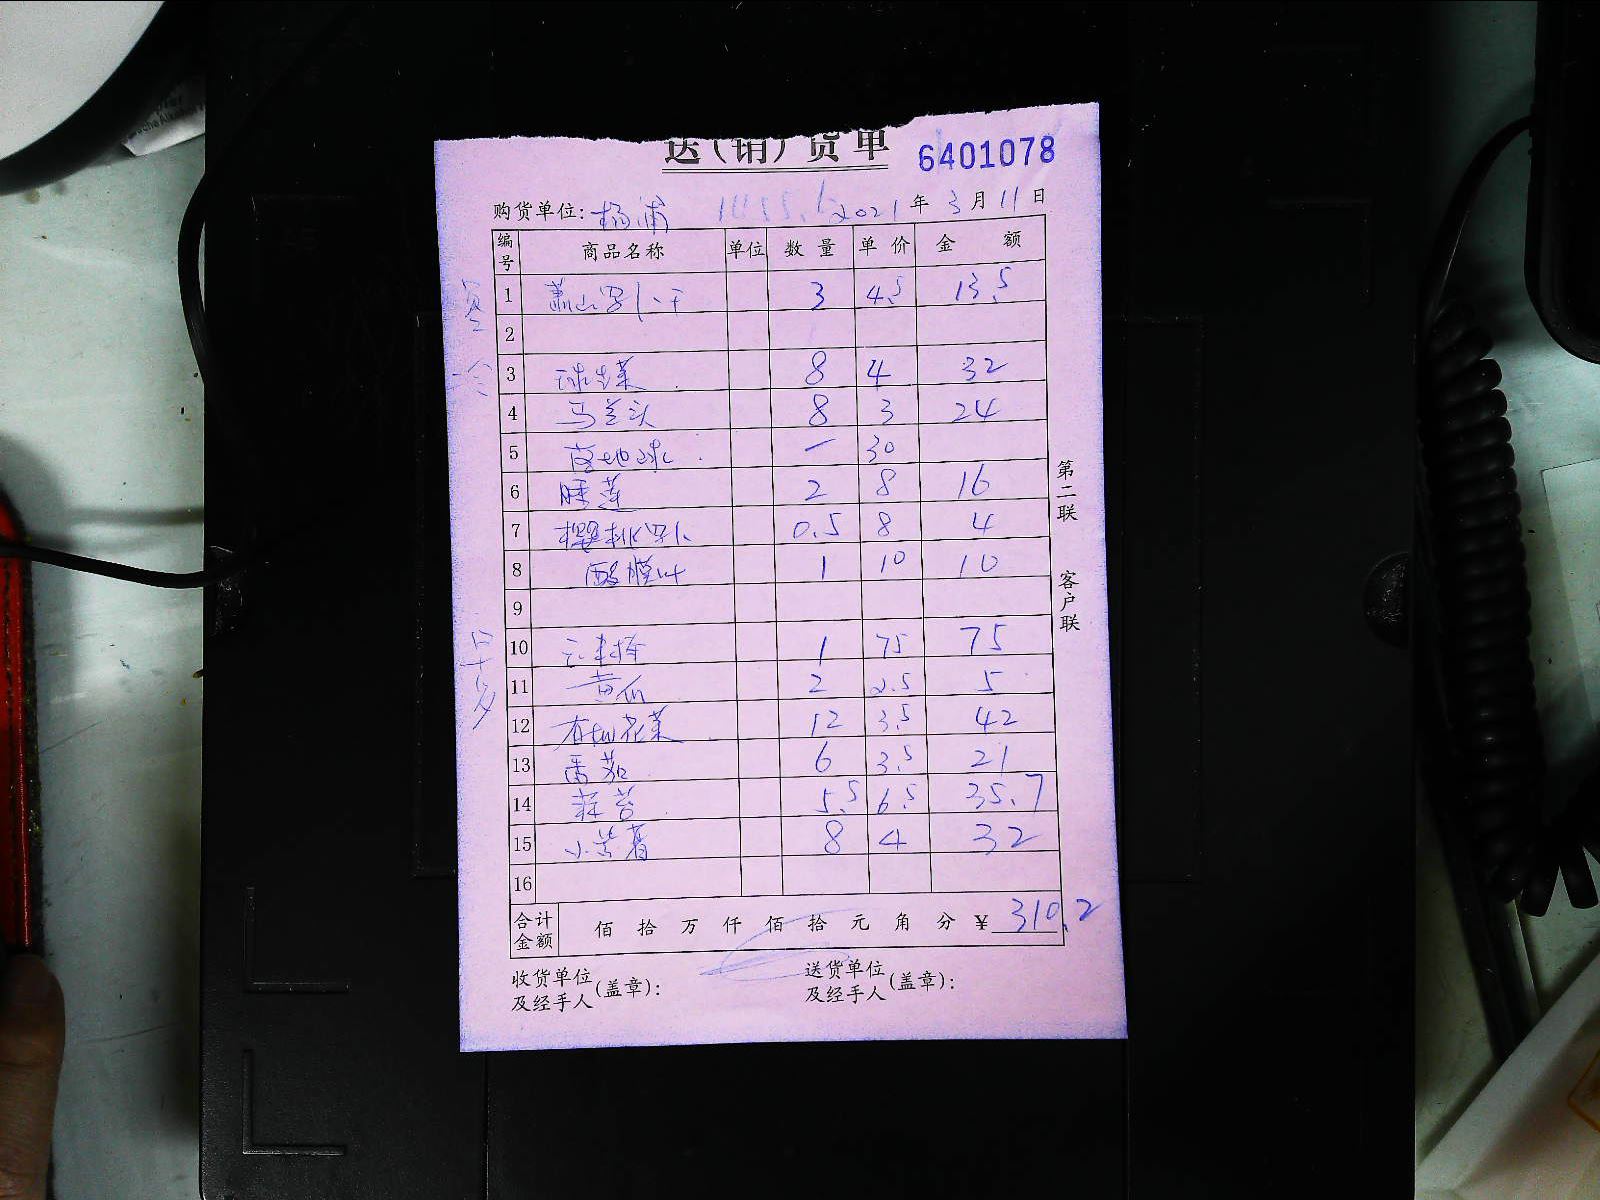 送(销)货单 6401078
购货单位: 杨浦 2021年3月11日
编号 商品名称 单位 数量 单价 金额
1 萧山罗卜干 3 4.5 13.5
2
3 球生菜 8 4 32
4 马兰头 8 3 24
5 落地球 一 30
6 睡莲 2 8 16
7 樱桃罗卜 0.5 8 4
8 酸膜叶 1 10 10
9
10 1 75 75
11 黄瓜 2 2.5 5
12 有机花菜 12 3.5 42
13 番茄 6 3.5 21
14 蒜苔 5.5 6.5 35.7
15 小芋艿 8 4 32
16
合计金额 佰 拾 万 仟 佰 拾 元 角 分 ¥310.2
收货单位及经手人(盖章):
送货单位及经手人(盖章):
第二联
客户联